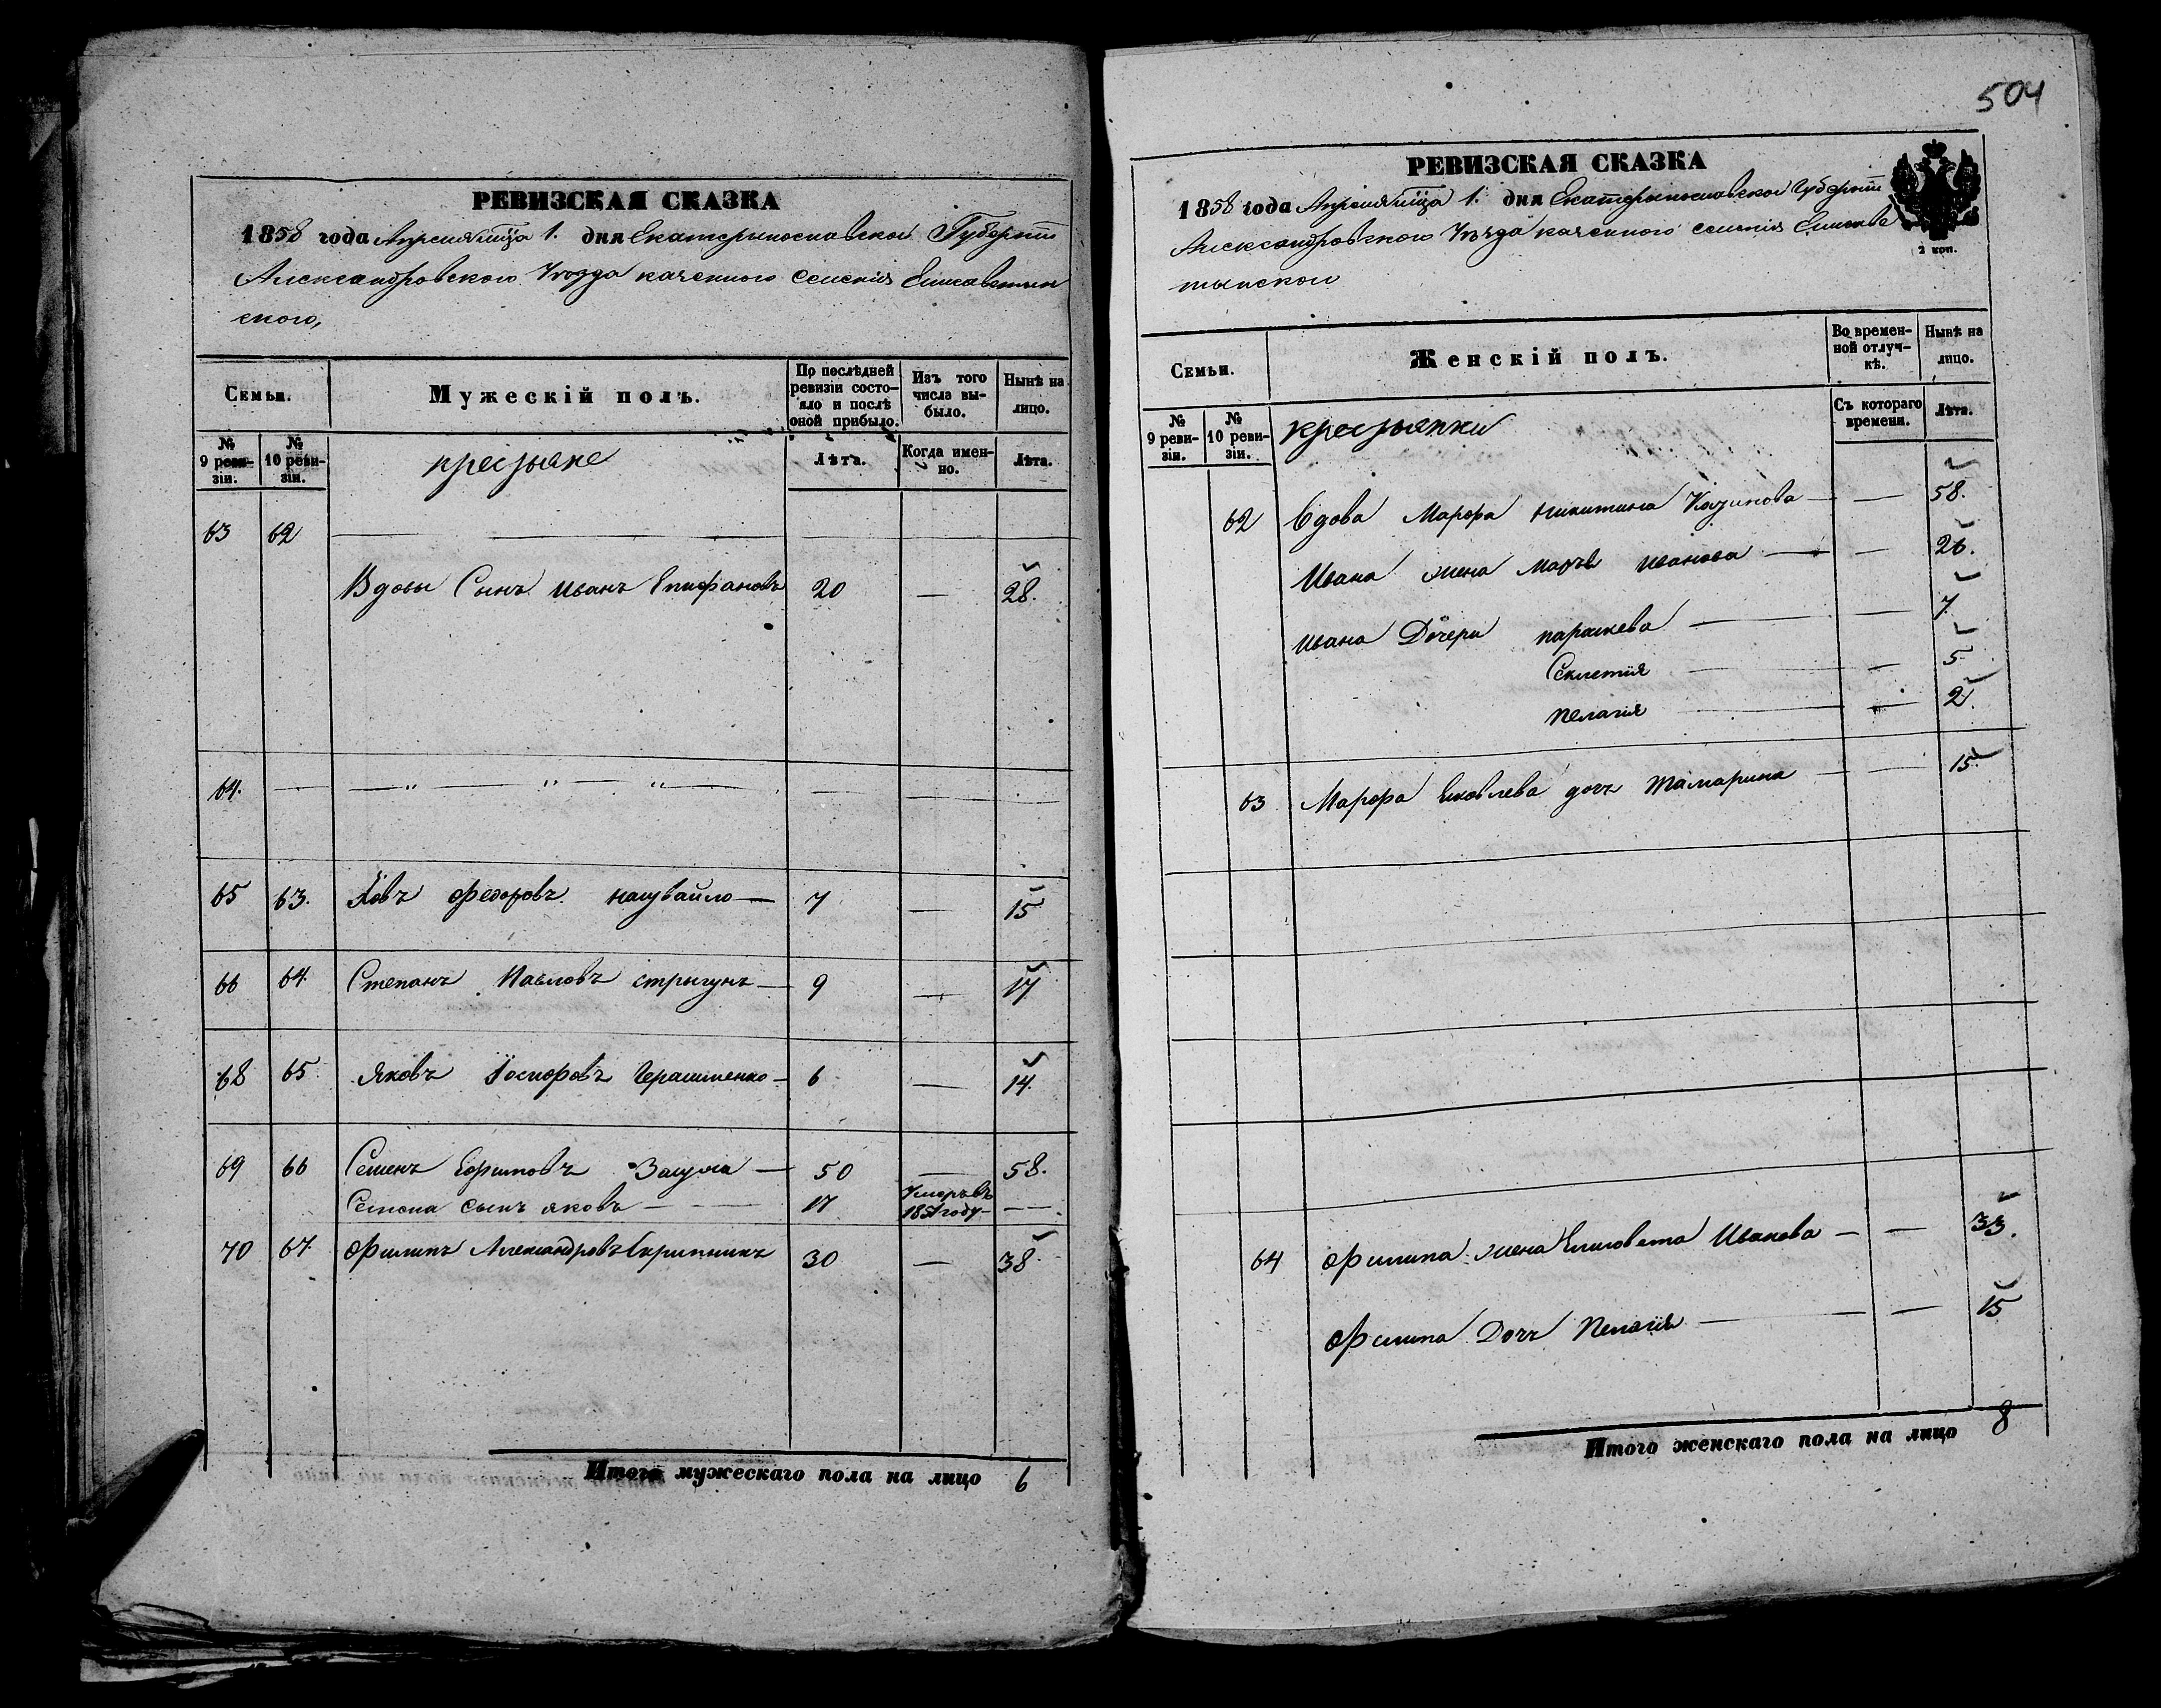 РЕВИЗСКАЯ СКАЗКА
1858 года Апреля мца 1. дня Екатеринославской Губерніи
Александровского Уезда казенного селенія Елисаветин
ского,
Семьи.
Мужескій полъ.
По послѣдней ревизіи состояло и послѣ оной прибыло.
Изъ того числа выбыло.
Нынѣ на лицо.
№ 9 ревизіи.
№ 10 ревизіи.
крестьяне
Лѣта.
Когда именно.
Лѣта.
63 62
Вдовы Сынъ Иванъ Епифановъ 20 — 28.
64. — „ — „ — „ —
65 63. Іовъ Федоровъ 7 — 15
66 64. Степанъ Павловъ стригунъ — 9 — 17
68 65. Яковъ Іосифовъ Герашченко — 6 — 14.
69 66 Семенъ Ефимовъ — 50 — 58.
Семена сынъ яковъ — 17 Умеръ въ 1851 году — —
70 67. Филипъ Александровъ Скрипникъ 30 — 38.
Итого мужескаго пола на лицо 6
504
РЕВИЗСКАЯ СКАЗКА
1858 года Апреля мца 1. дня Екатеринославской Губерніи
Александровского Уѣзда казенного селенія Елисаве
тинской
2 коп.
Семьи.
Женскій полъ.
Во временной отлучкѣ.
Нынѣ на лицо.
№ 9 ревизіи.
№ 10 ревизіи.
крестьянки
Съ котораго времени.
Лѣта.
62 Вдова Марфа Никитина Казинова — — 58.
Ивана жена Марѳа Иванова — — 26.
Ивана Дочери параскева — — 7
Секлетія — — 5
пелагія — — 2.
63 Марфа Яковлева дочь Тамарина — — 15.
64 Филипа жена Елисовета Иванова — — 33.
Филипа Дочь Пелагія — — 15
Итого женскаго пола на лицо 8